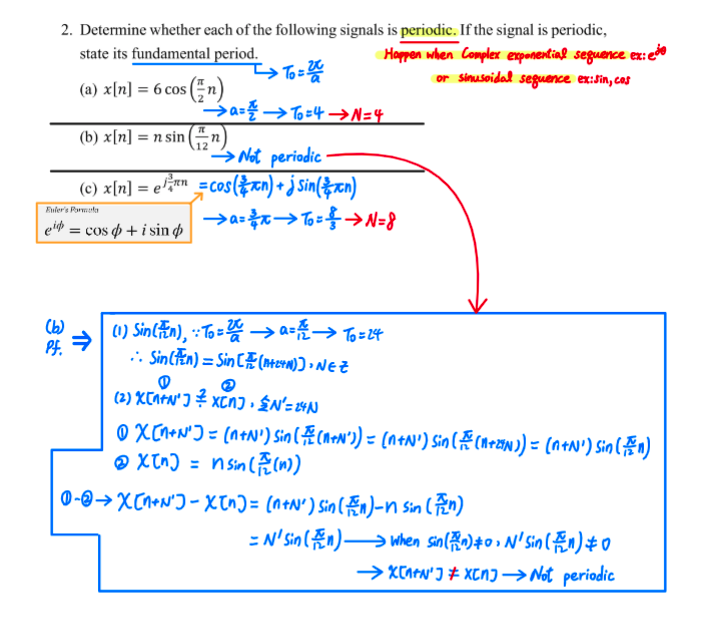 2. Determine whether each of the following signals is periodic. If the signal is periodic,
state its fundamental period.
Happen when Complex exponential sequence ex: e^jθ
or sinusoidal sequence ex: sin, cos
→ T₀ = 2π/a
(a) x[n] = 6 cos (π/2 n)
→ a = π/2 → T₀ = 4 → N = 4
(b) x[n] = n sin (π/12 n)
→ Not periodic
(c) x[n] = e^(j 3/4 πn) = cos(3/4 πn) + j sin(3/4 πn)
→ a = 3/4 π → T₀ = 8/3 → N = 8
Euler's Formula
e^(iφ) = cos φ + i sin φ
(b) Pf. ⇒
(1) Sin(π/12 n), ∵ T₀ = 2π/a → a = π/12 → T₀ = 24
∴ Sin(π/12 n) = Sin[π/12 (n+24N)], N∈Z
① ②
(2) X[n+N'] ≟ X[n], 令N' = 24N
① X[n+N'] = (n+N') Sin(π/12 (n+N')) = (n+N') Sin(π/12 (n+24N)) = (n+N') Sin(π/12 n)
② X[n] = n sin(π/12 (n))
①-② → X[n+N'] - X[n] = (n+N') Sin(π/12 n) - n Sin(π/12 n)
= N' Sin(π/12 n) → When Sin(π/12 n) ≠ 0, N' Sin(π/12 n) ≠ 0
→ X[n+N'] ≠ X[n] → Not periodic